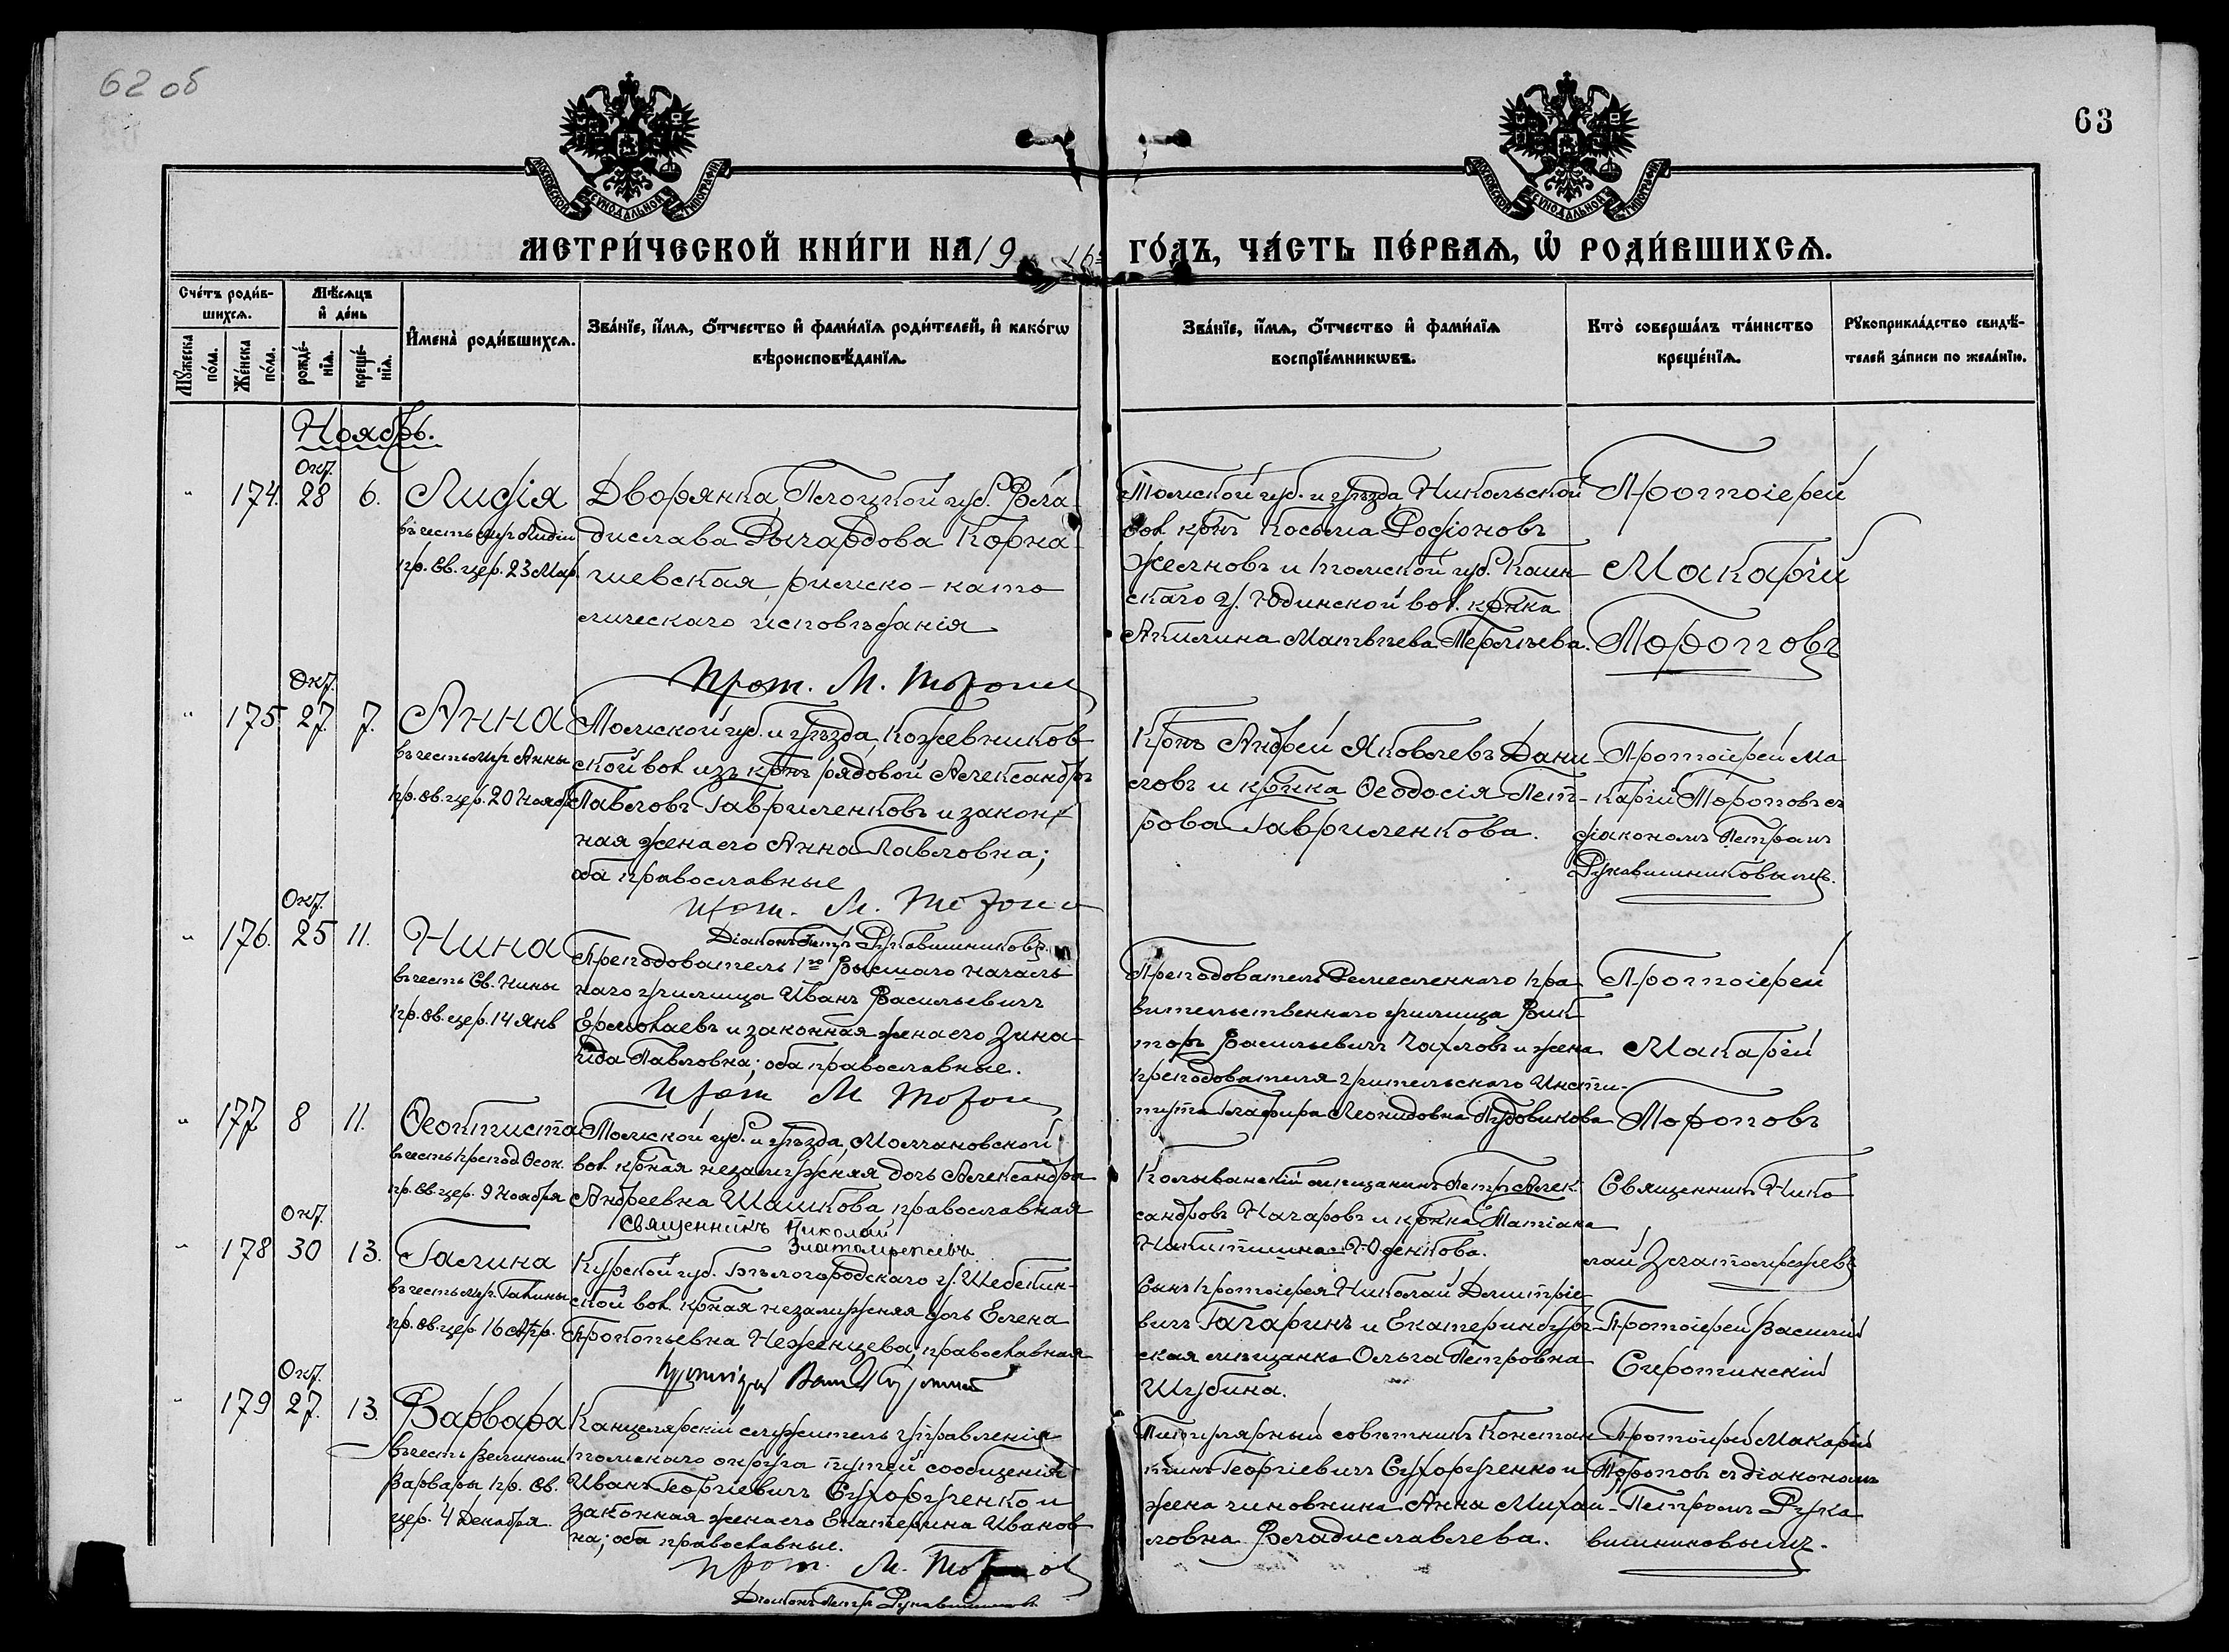 62 об
63
МОСКОВСКОЙ СѴНОДАЛЬНОЙ ТИПОГРАФІИ
МОСКОВСКОЙ СѴНОДАЛЬНОЙ ТИПОГРАФІИ
МЕТРИ́ЧЕСКОЙ КНИ́ГИ НА 1916 ГО́ДЪ, ЧА́СТЬ ПЕ́РВАѦ, Ѡ҆ РОДИ́ВШИХСѦ.
Сче́тъ роди́в-
шихсѧ.
Мѣ́сѧцъ
и҆ де́нь
Мꙋ́жеска
по́ла.
Же́нска
по́ла.
рожде́-
нїѧ.
креще́-
нїѧ.
И҆мена̀ роди́вшихсѧ.
Зва́нїе, и҆́мѧ, ѻ҆́тчество и҆ фами́лїѧ роди́телей, и҆ како́гѡ
вѣроисповѣ́данїѧ.
Зва́нїе, и҆́мѧ, ѻ҆́тчество и҆ фами́лїѧ
воспрїе́мникѡвъ.
Кто̀ соверша́лъ та́инство
креще́нїѧ.
Рꙋкоприкла́дство свидѣ́-
телей за́писи по жела́нїю.
Ноябрь.
Окт.
" 174. 28 6. Лидія
въ честь муч. Лидіи
пр. св. цер. 23 Мар.
Дворянка Плоцкой губ. Вла-
дислава Рычардова Корна-
чиевская, римско-като
лическаго исповѣданія
Прот. М. Торопов
Томской губ. и уѣзда, Никольской
вол. крнъ Косьма Родіоновъ
Желновъ и Томской губ. Каин
скаго у. Юдинской вол. крнка
Акилина Матвѣева Терентьева.
Протоіерей
Макарій
Торопговъ
Окт.
" 175. 27. 7. Анна
въ честь муч. Анны
пр. св. цер. 20 Ноябр.
Томской губ. и уѣзда, Кожевников
ской вол. изъ крнъ рядовой Александръ
Павловъ Гавриленковъ и закон-
ная жена его Анна Павловна;
оба православные
Прот. М. Торопов
Діаконъ Петръ Рукавишниковъ
Крнъ Андрей Яковлевъ Дани-
ловъ и крнка Ѳеодосія Пет-
рова Гавриленкова.
Протоіерей Ма
карій Тороповъ съ
діакономъ Петромъ
Рукавишниковымъ.
Окт.
" 176. 25 11. Нина
въ честь Св. Нины
пр. св. цер. 14 Янв
Преподователь 1го Высшаго началь
наго училища Иванъ Васильевичъ
Ермолаевъ и законная жена его Зина
ида Павловна; оба православные.
Прот М Торопов
Преподователь Ремесленнаго пра
вительственнаго училища Вик
торъ Васильевичъ Чахловъ и жена
преподователя учительскаго Инсти-
тута Глафира Леонидовна Пудовикова
Протоіерей
Макарій
Тороповъ
" 177 8 11. Ѳеоктиста
въ честь препод. Ѳеок.
пр. св. цер. 9 Ноября
Томской губ. и уѣзда, Молчановской
вол. крная незамужняя дочь Александра
Андреевна Шашкова православная
Священникъ Николай
Златомрежевъ
Колыванскій мѣщанинъ Петръ Алек
сандровъ Начаровъ и крнка Татіана
Никитишна Юденкова.
Священникъ Нико
лай Златомрежевъ
Окт.
" 178 30 13. Галина
въ честь муч. Галины
пр. св. цер. 16 Апр.
Курской губ. Бѣлогородскаго у. Шебекин-
ской вол. крная незамужняя дочь Елена
Прокопьевна Неженцева; православная
Сынъ протоіерея Николай Димитріе
вичъ Гагаринъ и Екатеринбург-
ская мѣщанка Ольга Петровна
Шубина.
Протоіерей Василій
Сиротинскій
Окт.
" 179 27. 13. Варвара
въ честь Великом
Варвары пр. св.
цер. 4 Декабря.
Канцелярскій служитель управленія
Томскаго округа путей сообщенія
Иванъ Георгіевичъ Сухорученко и
законная жена его Екатерина Иванов
на; оба православные.
Прот. М. Торопов
Діаконъ Петръ Рукавишниковъ
Титулярный совѣтникъ Констан
тинъ Георгіевичъ Сухорученко и
жена чиновника Анна Михаи-
ловна Владиславлева.
Протоіерей Макарій
Тороповъ съ діакономъ
Петромъ Рука
вишниковымъ.